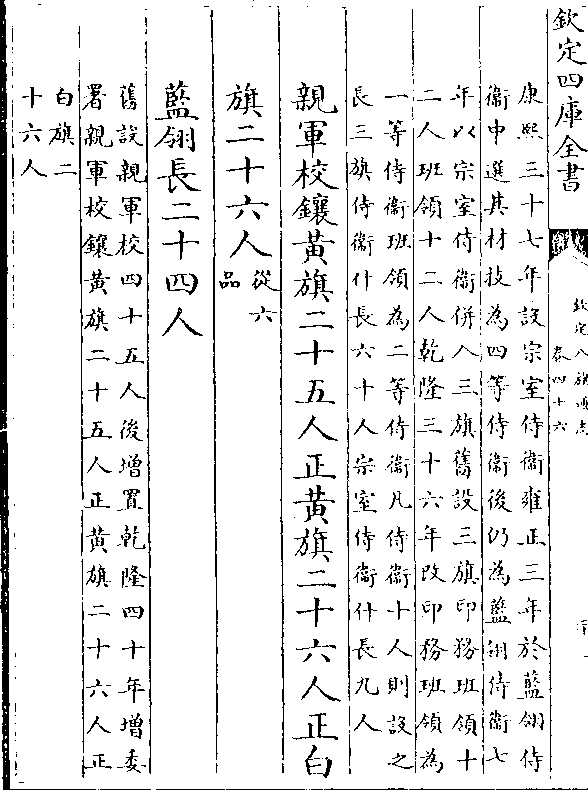 欽定四庫全書
欽定八旗通志
卷四十六
康熙三十七年設宗室侍衞雍正三年於藍翎侍
衞中選其材技為四等侍衞後仍為藍翎侍衞七
年以宗室侍衞併入三旗舊設三旗印務班領十
二人班領十二人乾隆三十六年改印務班領為
一等侍衞班領為二等侍衞凡侍衞十人則設之
長三旗侍衞什長六十人宗室侍衞什長九人
親軍校鑲黃旗二十五人正黃旗二十六人正白
旗二十六人從六
品
藍翎長二十四人
舊設親軍校四十五人後增置乾隆四十年增委
署親軍校鑲黃旗二十五人正黃旗二十六人正
白旗二
十六人